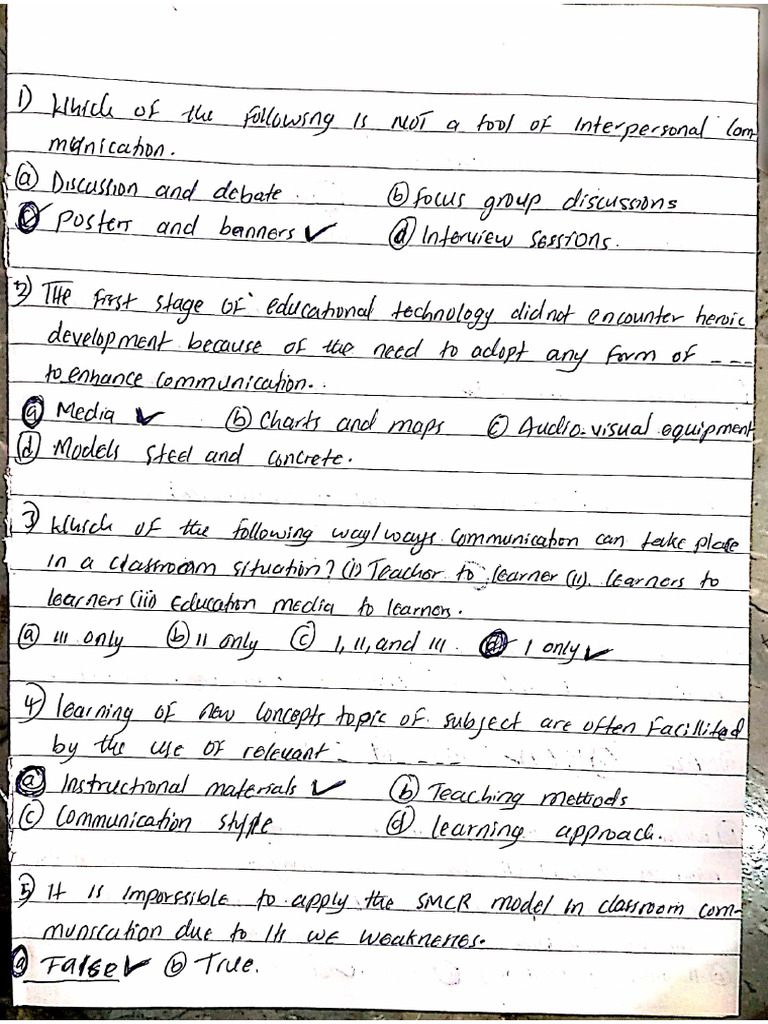 1) Which of the following is NOT a tool of interpersonal Com-
munication.
(a) Discussion and debate (b) Focus group discussions
(c) Posters and banners ✓ (d) Interview sessions.
2) The first stage of educational technology did not encounter heroic
development because of the need to adopt any form of ---
to enhance communication.
(a) Media ✓ (b) Charts and maps (c) Audio-visual equipment
(d) Models steel and concrete.
3) Which of the following way/ways Communication can take place
in a classroom situation? (i) Teacher to learner (ii). learners to
learners (iii) Education media to learners.
(a) III only (b) II only (c) I, II, and III. (d) I only ✓
4) learning of new concepts topic of subject are often Facillited
by the use of relevant - - - - - -
(a) Instructional materials ✓ (b) Teaching methods
(c) Communication style (d) learning approach.
5) It is impossible to apply the SMCR model in classroom com-
munication due to its we weaknesses.
(a) False ✓ (b) True.